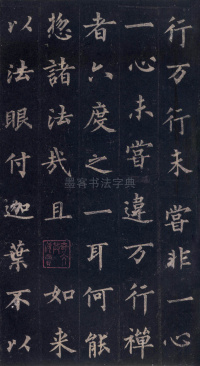 行万行未嘗非一心
一心未嘗違万行禪
者六度之一耳何能
揔諸法哉且如来
以法眼付迦葉不以
墨客书法字典